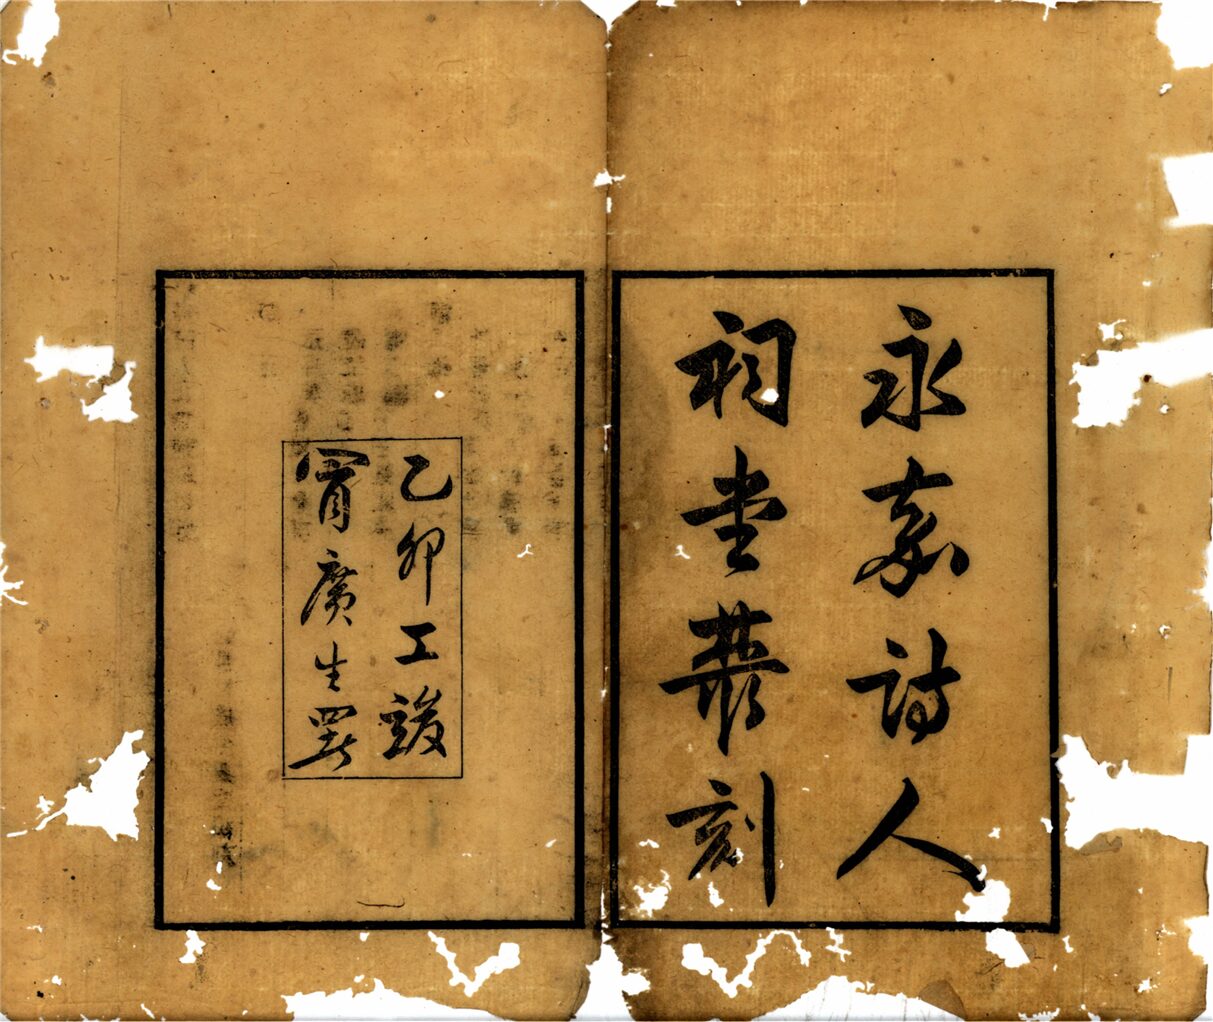 永嘉詩人
祠堂叢刻
乙卯工竣
冒廣生署